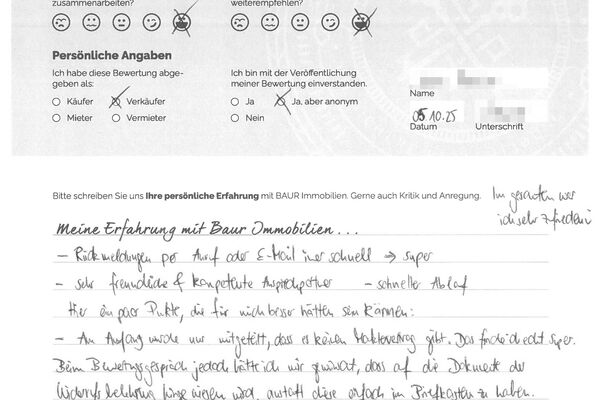 zusammenarbeiten? weiterempfehlen?
Persönliche Angaben
Ich habe diese Bewertung abge- Ich bin mit der Veröffentlichung
geben als: meiner Bewertung einverstanden.
Käufer Verkäufer Ja Ja, aber anonym
Mieter Vermieter Nein
Name
05.10.25
Datum Unterschrift
Bitte schreiben Sie uns Ihre persönliche Erfahrung mit BAUR Immobilien. Gerne auch Kritik und Anregung.
Im gesamten war
ich sehr zufrieden
Meine Erfahrung mit Baur Immobilien...
- Rückmeldungen per Anruf oder E-Mail immer schnell → super
- sehr freundliche & kompetente Ansprechpartner - schneller Ablauf
Hier ein paar Punkte, die für mich besser hätten sein können:
- Am Anfang wurde mir mitgeteilt, dass es keinen Maklervertrag gibt. Das finde ich echt super.
Beim Bewertungsgespräch jedoch hätte ich mir gewünscht, dass auf die Dokumente der
Widerrufsbelehrung hingewiesen wird, anstatt diese einfach im Briefkasten zu haben.